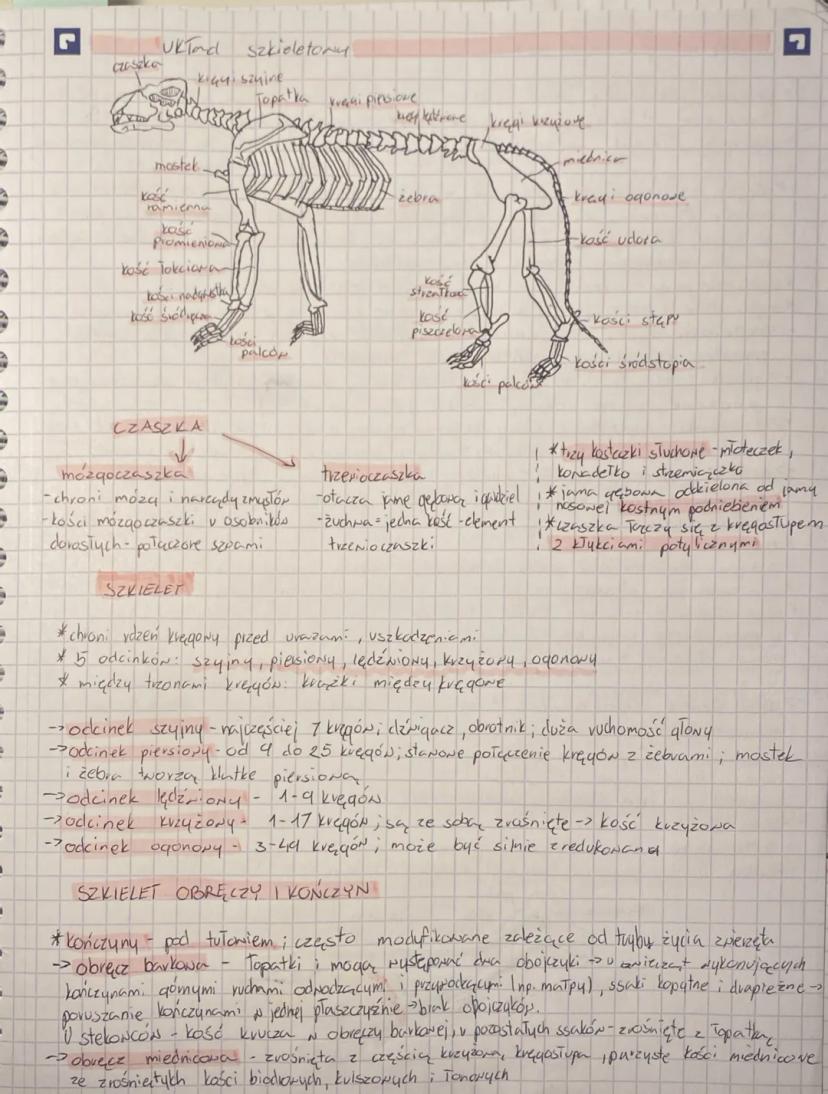 układ szkieletowy
czaszka
kręgi szyjne
łopatka
kręgi piersiowe
kręgi lędźwiowe
kręgi krzyżowe
mostek
miednica
kość ramienna
żebra
kręgi ogonowe
kość promieniowa
kość udowa
kość łokciowa
kość strzałkowa
kości nadgarstka
kość śródręcza
kość piszczelowa
kości stępu
kości palców
kości śródstopia
kości palców
CZASZKA
mózgoczaszka
-chroni mózg i narządy zmysłów
-kości mózgoczaszki u osobników
dorosłych - połączone szwami
trzewioczaszka
-otacza jamę gębową i gardziel
-żuchwa = jedna kość - element
trzewioczaszki
*trzy kosteczki słuchowe - młoteczek,
kowadełko i strzemiączko
*jama gębowa oddzielona od jamy
nosowej kostnym podniebieniem
*czaszka łączy się z kręgosłupem
2 kłykciami potylicznymi
SZKIELET
*chroni rdzeń kręgowy przed urazami, uszkodzeniami
* 5 odcinków: szyjny, piersiowy, lędźwiowy, krzyżowy, ogonowy
* między trzonami kręgów: krążki między kręgowe
→odcinek szyjny - najczęściej 7 kręgów; dźwigacz, obrotnik; duża ruchomość głowy
→odcinek piersiowy - od 9 do 25 kręgów; stawowe połączenie kręgów z żebrami; mostek
i żebra tworzą klatkę piersiową
→odcinek lędźwiowy - 1-9 kręgów
→odcinek krzyżowy - 1-17 kręgów; są ze sobą zrośnięte → kość krzyżowa
→odcinek ogonowy - 3-49 kręgów; może być silnie zredukowana
SZKIELET OBRĘCZY I KOŃCZYN
*kończyny - pod tułowiem; często modyfikowane zależące od trybu życia zwierzęta
→ obręcz barkowa - łopatki i mogą występować dwa obojczyki → u zwierząt wykonujących
kończynami górnymi ruchami odwodzącymi i przywodzącymi (np. małpy), ssaki kopytne i drapieżne →
poruszanie kończynami w jednej płaszczyźnie → brak obojczyków.
U stekowców - kość krucza w obręczy barkowej, u pozostałych ssaków - zrośnięte z łopatką
→ obręcz miednicowa - zrośnięta z częścią krzyżową kręgosłupa, parzyste kości miednicowe
ze zrośniętych kości biodrowych, kulszowych i łonowych